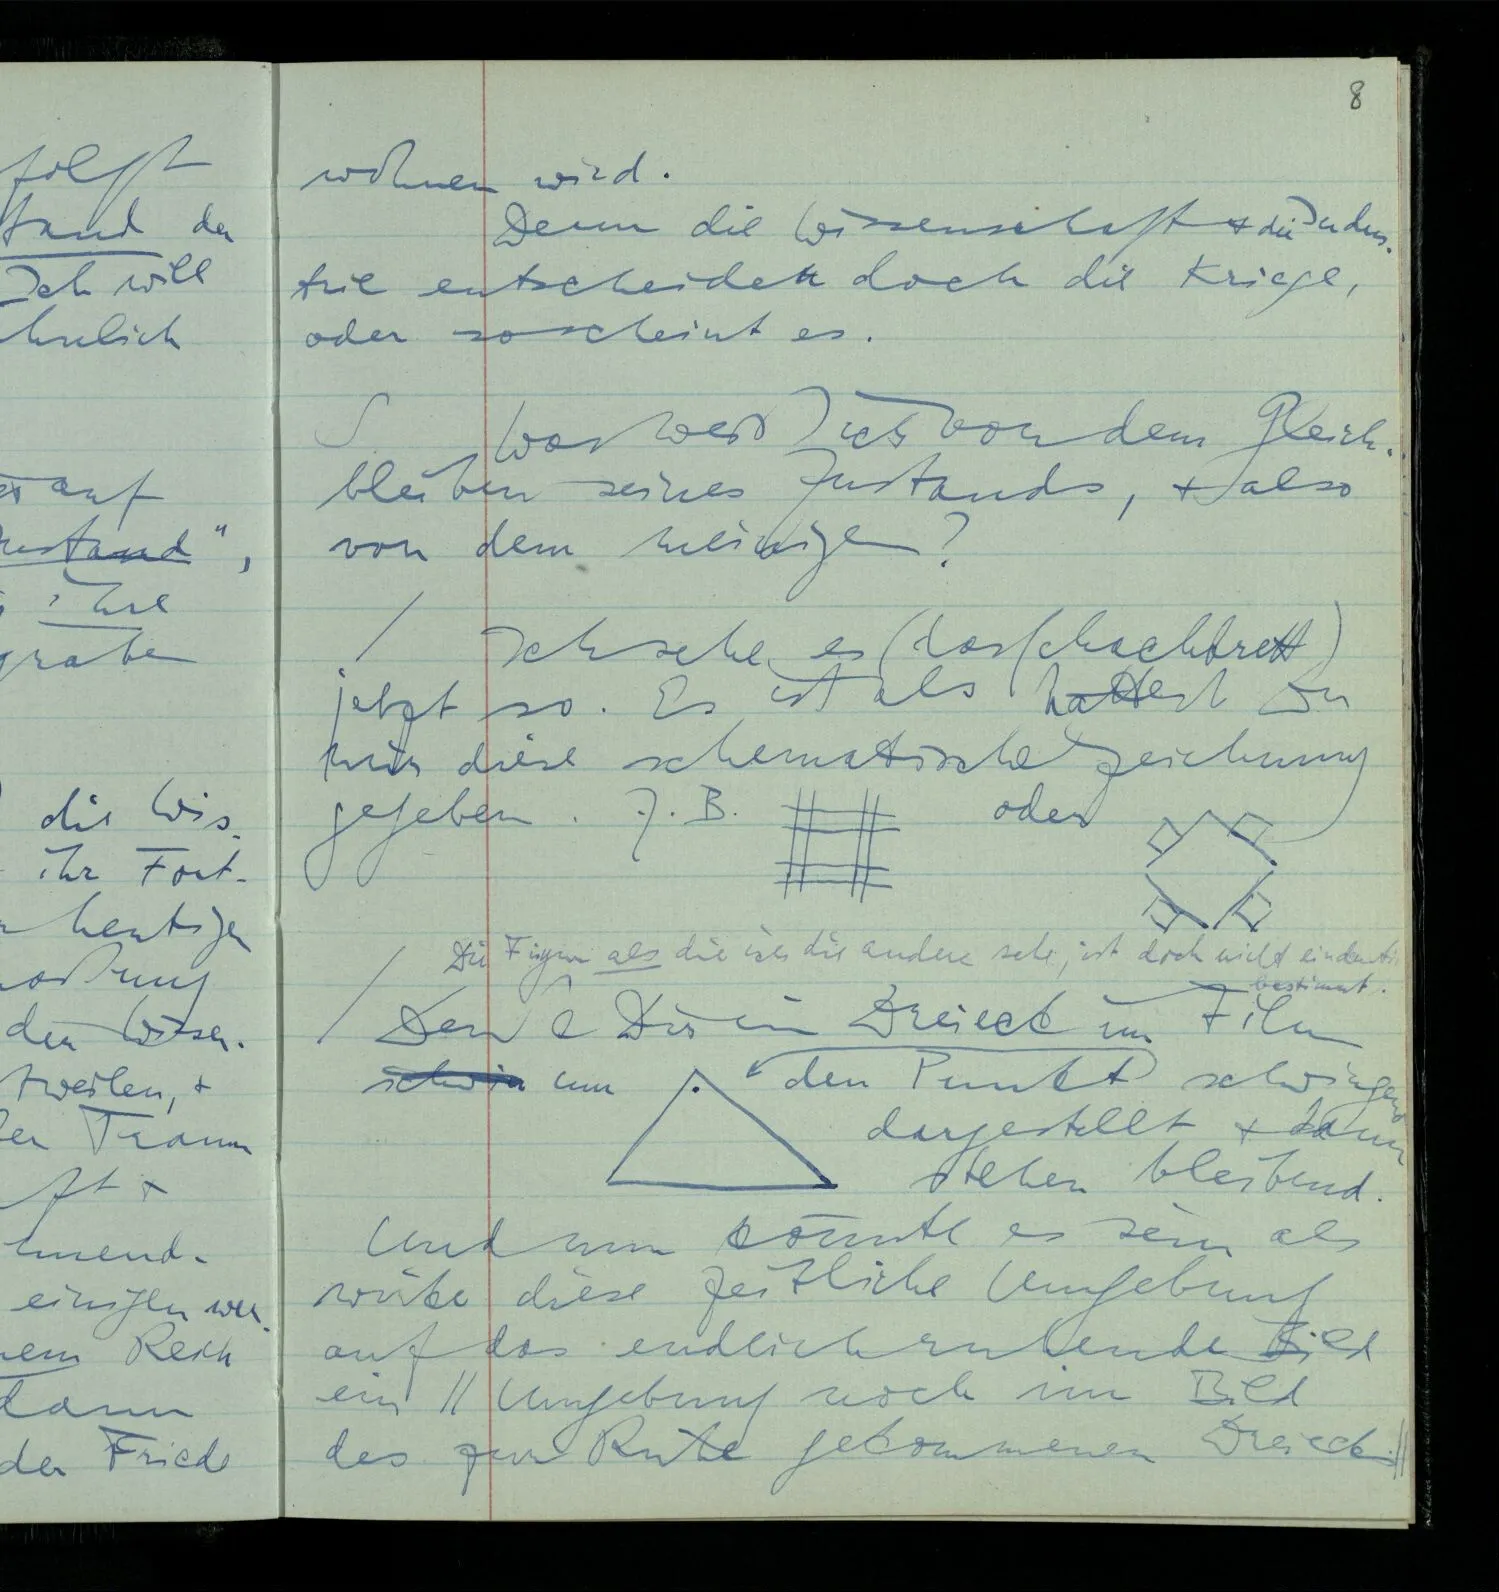 folgt
tand der
Ich will
hnlich
auf
ustand",
ihre
grabe
die Wis-
ihr Fort-
heutigen
den Wissen-
tweilen, +
Traum
ft +
hmend-
einigen wer-
nem Reich
dann
der Friede
8
wöhnen wird.
Denn die Wissenschaft + die Indus-
trie entscheiden doch die Kriege,
oder so scheint es.
S Was weiß Ich von dem Gleich-
bleiben seines Zustands, + also
von dem meinigen?
/ Ich sehe es (das Schachbrett)
jetzt so. Es ist als hattest Du
mir diese schematische Zeichnung
gegeben. Z.B. oder
/ Die Figur als die ich die andere sehe, ist doch nicht eindeutig
bestimmt.
/ Denk Dir ein Dreieck im Film
schwin um den Punkt schwingend
dargestellt + dann
stehen bleibend.
Und nun könnte es sein als
wirke diese zeitliche Umgebung
auf das endlich ruhende Bild
ein // Umgebung noch im Bild
des zur Ruhe gekommenen Dreiecks //